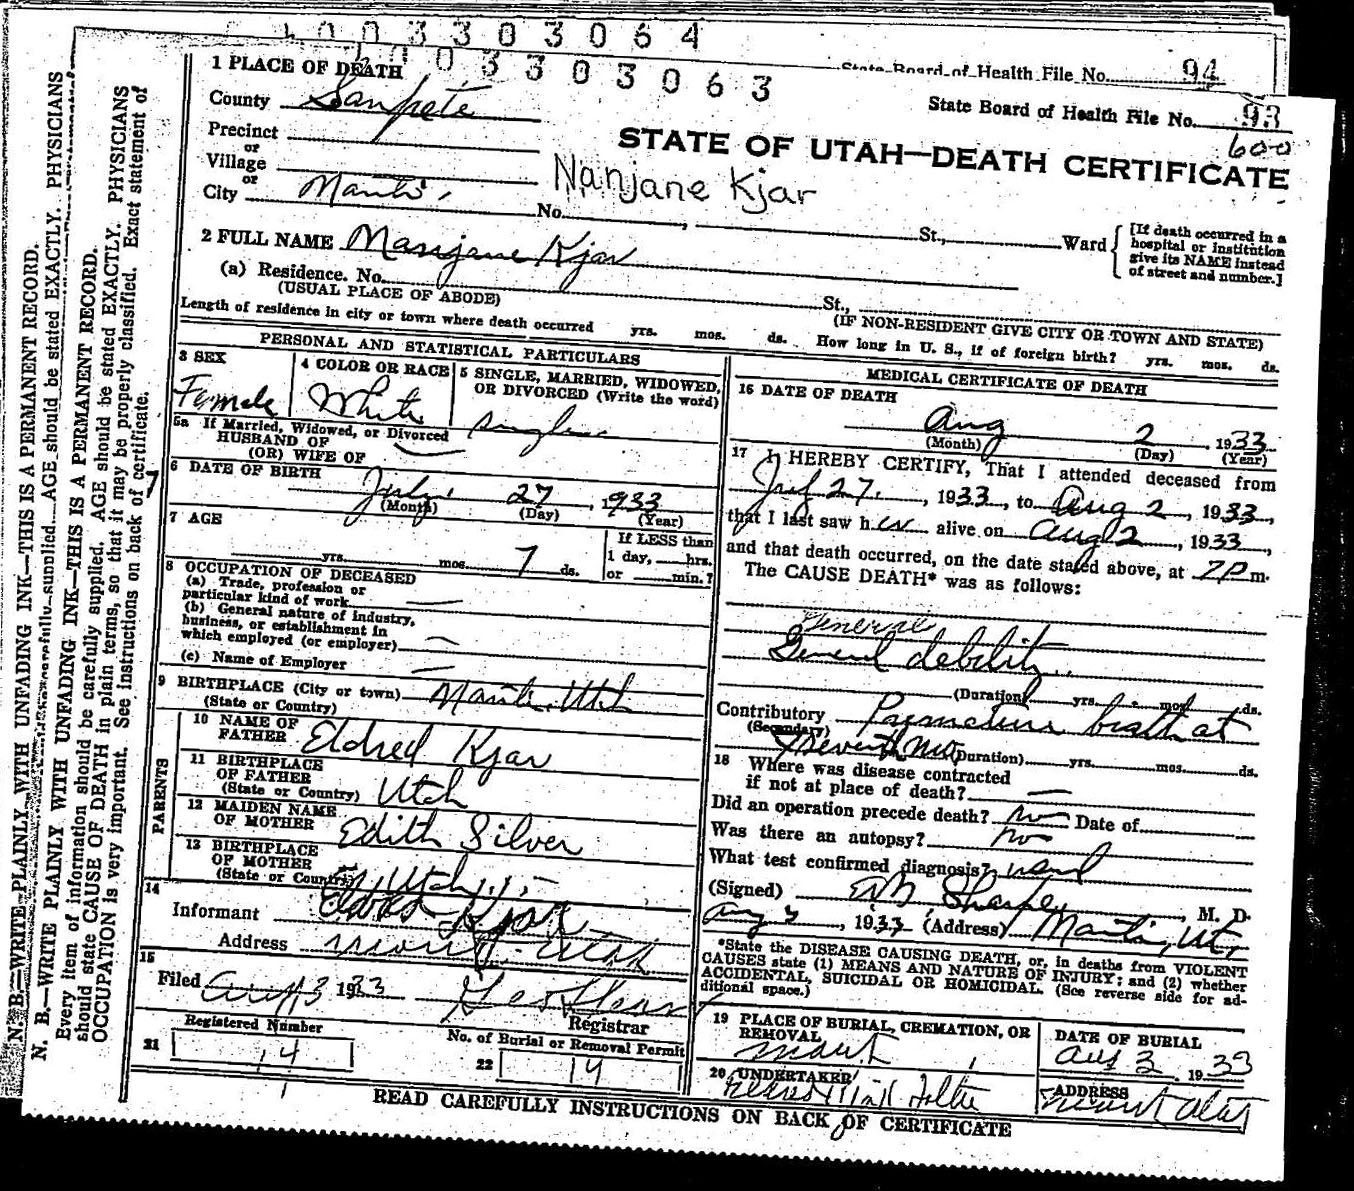 1 0 0 3 3 0 3 0 6 4
0 3 3 0 3 0 6 3
State Board of Health File No. 94
State Board of Health File No. 93
600
1 PLACE OF DEATH
County Sanpete
STATE OF UTAH—DEATH CERTIFICATE
Precinct
or
Village
or
Nanjane Kjar
City Manti, No. , St., Ward
[If death occurred in a
hospital or institution
give its NAME instead
of street and number.]
2 FULL NAME Nanjane Kjar
(a) Residence. No. St.,
(USUAL PLACE OF ABODE)
(IF NON-RESIDENT GIVE CITY OR TOWN AND STATE)
Length of residence in city or town where death occurred yrs. mos. ds. How long in U. S., if of foreign birth? yrs. mos. ds.
PERSONAL AND STATISTICAL PARTICULARS
3 SEX
Female
4 COLOR OR RACE
White
5 SINGLE, MARRIED, WIDOWED,
OR DIVORCED (Write the word)
single
5a If Married, Widowed, or Divorced
HUSBAND OF
(OR) WIFE OF
6 DATE OF BIRTH
July 27, 1933
(Month) (Day) (Year)
7 AGE
yrs. mos. 7 ds.
If LESS than
1 day, hrs.
or min.?
8 OCCUPATION OF DECEASED
(a) Trade, profession or
particular kind of work
(b) General nature of industry,
business, or establishment in
which employed (or employer)
(c) Name of Employer
9 BIRTHPLACE (City or town) Manti, Utah
(State or Country)
PARENTS
10 NAME OF
FATHER Eldred Kjar
11 BIRTHPLACE
OF FATHER
(State or Country) Utah
12 MAIDEN NAME
OF MOTHER Edith Silver
13 BIRTHPLACE
OF MOTHER
(State or Country) Utah
14
Informant Kjar
Address Utah
15
Filed Aug 3 1933
Registrar
Registered Number
21 14
No. of Burial or Removal Permit
22 14
MEDICAL CERTIFICATE OF DEATH
16 DATE OF DEATH
Aug 2 1933
(Month) (Day) (Year)
17 I HEREBY CERTIFY, That I attended deceased from
July 27, 1933, to Aug 2, 1933,
that I last saw her alive on Aug 2, 1933,
and that death occurred, on the date stated above, at 7 P m.
The CAUSE DEATH* was as follows:
General
General debility
(Duration) yrs. mos. ds.
Contributory Premature birth at
(Secondary) Seventh mo. (Duration) yrs. mos. ds.
18 Where was disease contracted
if not at place of death?
Did an operation precede death? no Date of
Was there an autopsy? no
What test confirmed diagnosis?
(Signed) Sharpe, M. D.
Aug 3, 1933 (Address) Manti, Ut.
*State the DISEASE CAUSING DEATH, or, in deaths from VIOLENT
CAUSES state (1) MEANS AND NATURE OF INJURY; and (2) whether
ACCIDENTAL, SUICIDAL OR HOMICIDAL. (See reverse side for ad-
ditional space.)
19 PLACE OF BURIAL, CREMATION, OR
REMOVAL
Manti
DATE OF BURIAL
Aug 3, 1933
20 UNDERTAKER
ADDRESS
READ CAREFULLY INSTRUCTIONS ON BACK OF CERTIFICATE
N. B.—WRITE PLAINLY WITH UNFADING INK—THIS IS A PERMANENT RECORD.
carefully supplied. AGE should be stated EXACTLY. PHYSICIANS
N. B.—WRITE PLAINLY WITH UNFADING INK—THIS IS A PERMANENT RECORD.
Every item of information should be carefully supplied. AGE should be stated EXACTLY. PHYSICIANS
should state CAUSE OF DEATH in plain terms, so that it may be properly classified. Exact statement of
OCCUPATION is very important. See instructions on back of certificate.
7